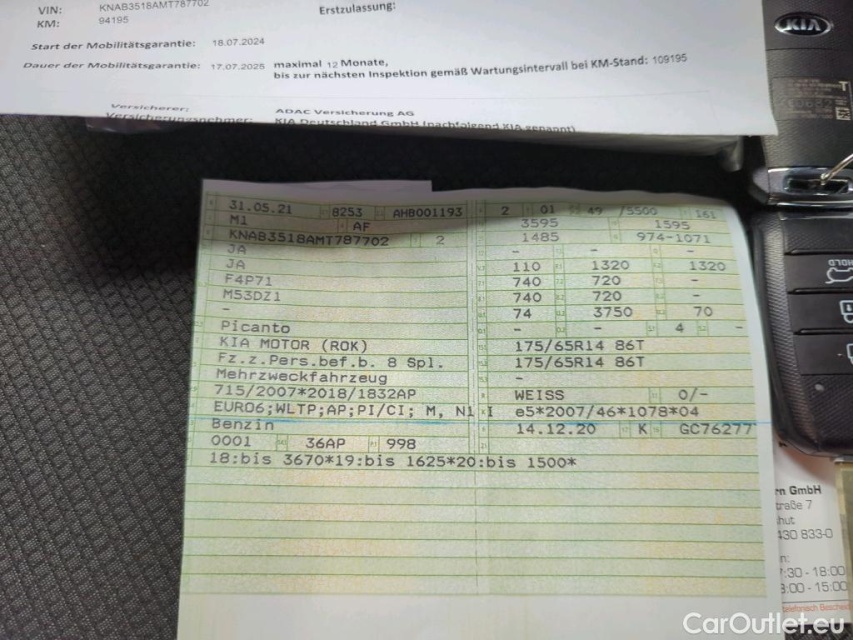 VIN: KNAB3518AMT787702 Erstzulassung:
KM: 94195
Start der Mobilitätsgarantie: 18.07.2024
Dauer der Mobilitätsgarantie: 17.07.2025 maximal 12 Monate,
bis zur nächsten Inspektion gemäß Wartungsintervall bei KM-Stand: 109195
Versicherer: ADAC Versicherung AG
Versicherungsnehmer: KIA Deutschland GmbH (nachfolgend KIA genannt)
KIA
HOLD
31.05.21 8253 AHB001193 2 01 49 /5500 161
M1 AF 3595 1595
KNAB3518AMT787702 2 1485 974-1071
JA - - -
JA 110 1320 1320
F4P71 740 720 -
M53DZ1 740 720 -
- 74 3750 70
Picanto - - 4 -
KIA MOTOR (ROK) 175/65R14 86T
Fz.z.Pers.bef.b. 8 Spl. 175/65R14 86T
Mehrzweckfahrzeug -
715/2007*2018/1832AP WEISS 0/-
EURO6;WLTP;AP;PI/CI; M, N1 I e5*2007/46*1078*04
Benzin 14.12.20 K GC76277
0001 36AP 998
18:bis 3670*19:bis 1625*20:bis 1500*
rn GmbH
traße 7
hut
430 833-0
n:
:30 - 18:00
8:00 - 15:00
telefonisch Bescheid
CarOutlet.eu